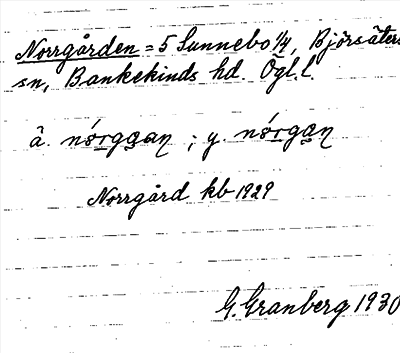 Norrgården = 5 Sunnebo 1/4, Björsäters
sn, Bankekinds hd. Ögl. l.
ä. nórggan ; y. nórgan
Norrgård kb 1929
G. Granberg 1930